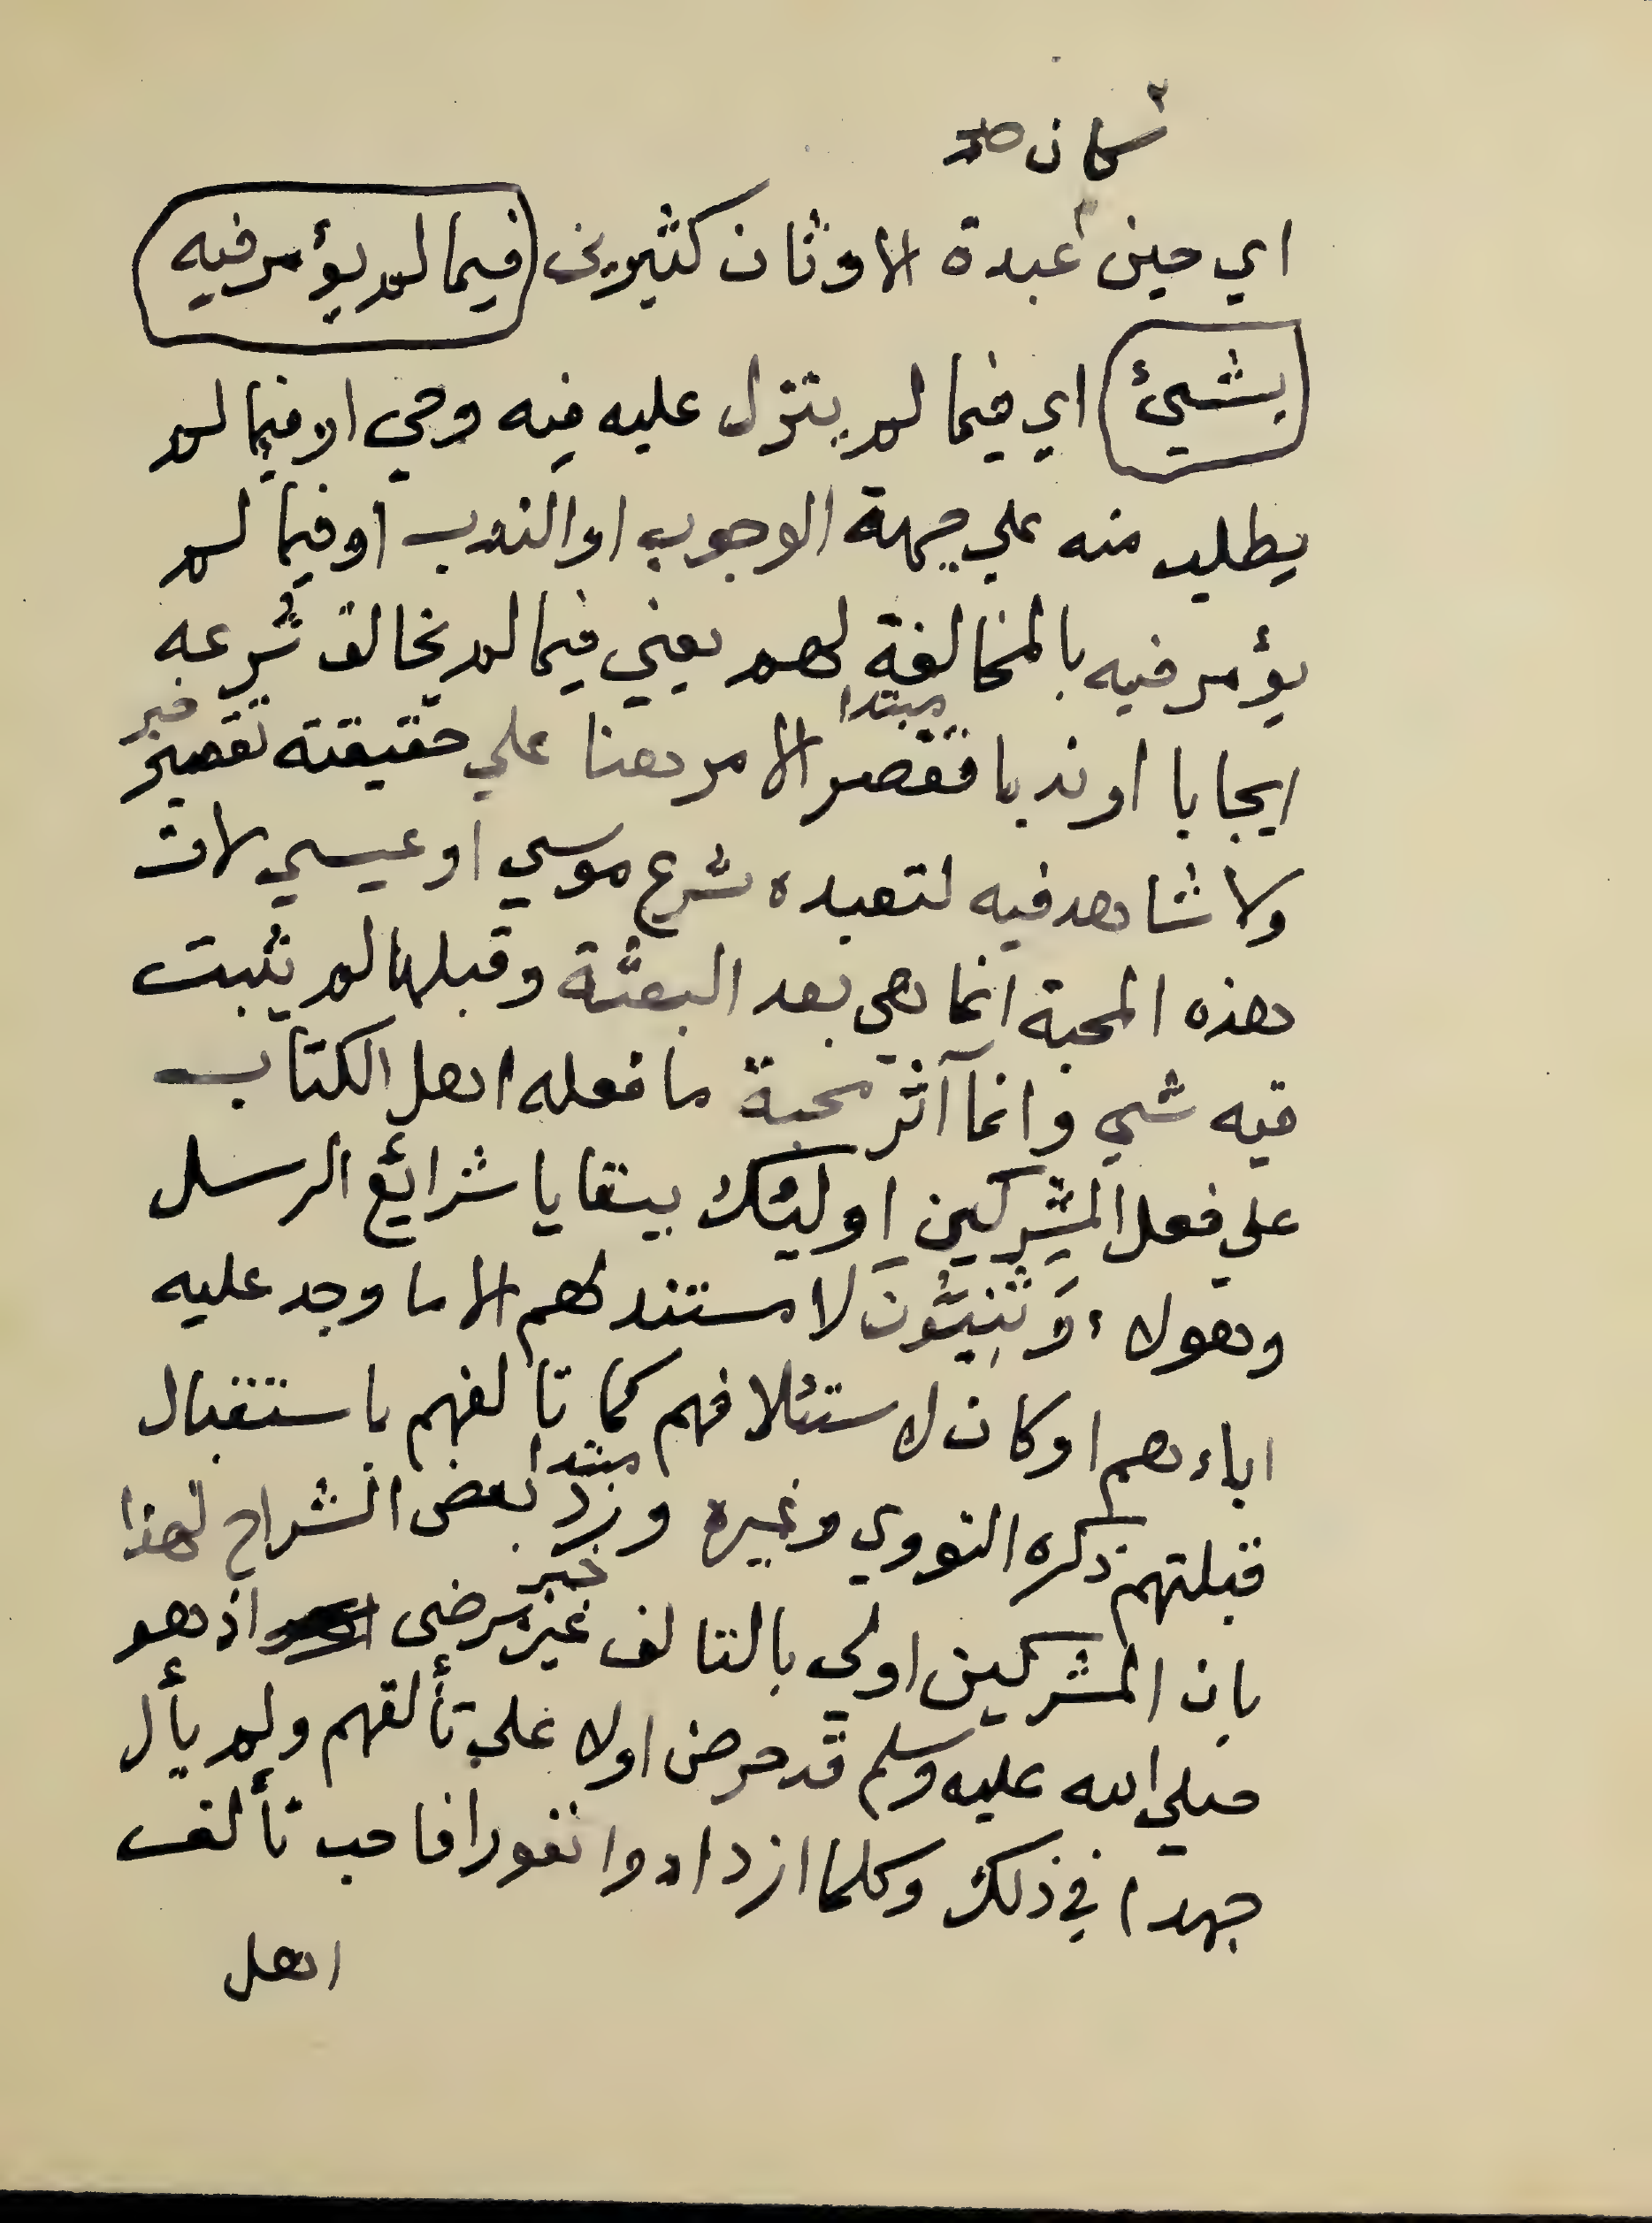 كان صح
اي حين عبدة الاوثان كثيرين فيما لم يؤمر فيه
بشيئ اي فيما لم ينزل عليه فيه وحي او فيما لم
يطلب منه علي جهة الوجوب او الندب او فيما لم
يؤمر فيه بالمخالفة لهم يعني فيما لم يخالف شرعه
مبتدا خبر
ايجابا او ندبا فقصر الامر هنا علي حقيقته تقصير
ولا شاهد فيه لتعبده بشرع موسي او عيسي لان
هذه المحبة انما هي بعد البعثة وقبلها لم يثبت
فيه شي وانما آثر محبة ما فعله اهل الكتاب
علي فعل المشركين اوليئك ببقايا شرائع الرسل
وهولاء وَثَنِيُّونَ لا مستند لهم الا ما وجد عليه
اباءهم او كان لاستئلافهم كما تالفهم باستقبال
مبتدا
قبلتهم ذكره النووي وغيره ورد بعض الشراح لهذا
خبر
بان المشركين اولي بالتالف غير مرضى اذ هو
صلي الله عليه وسلم قد حرض اولا علي تألفهم ولم يأل
جهدا في ذلك وكلما ازدادوا نفورا فاحب تألف
اهل